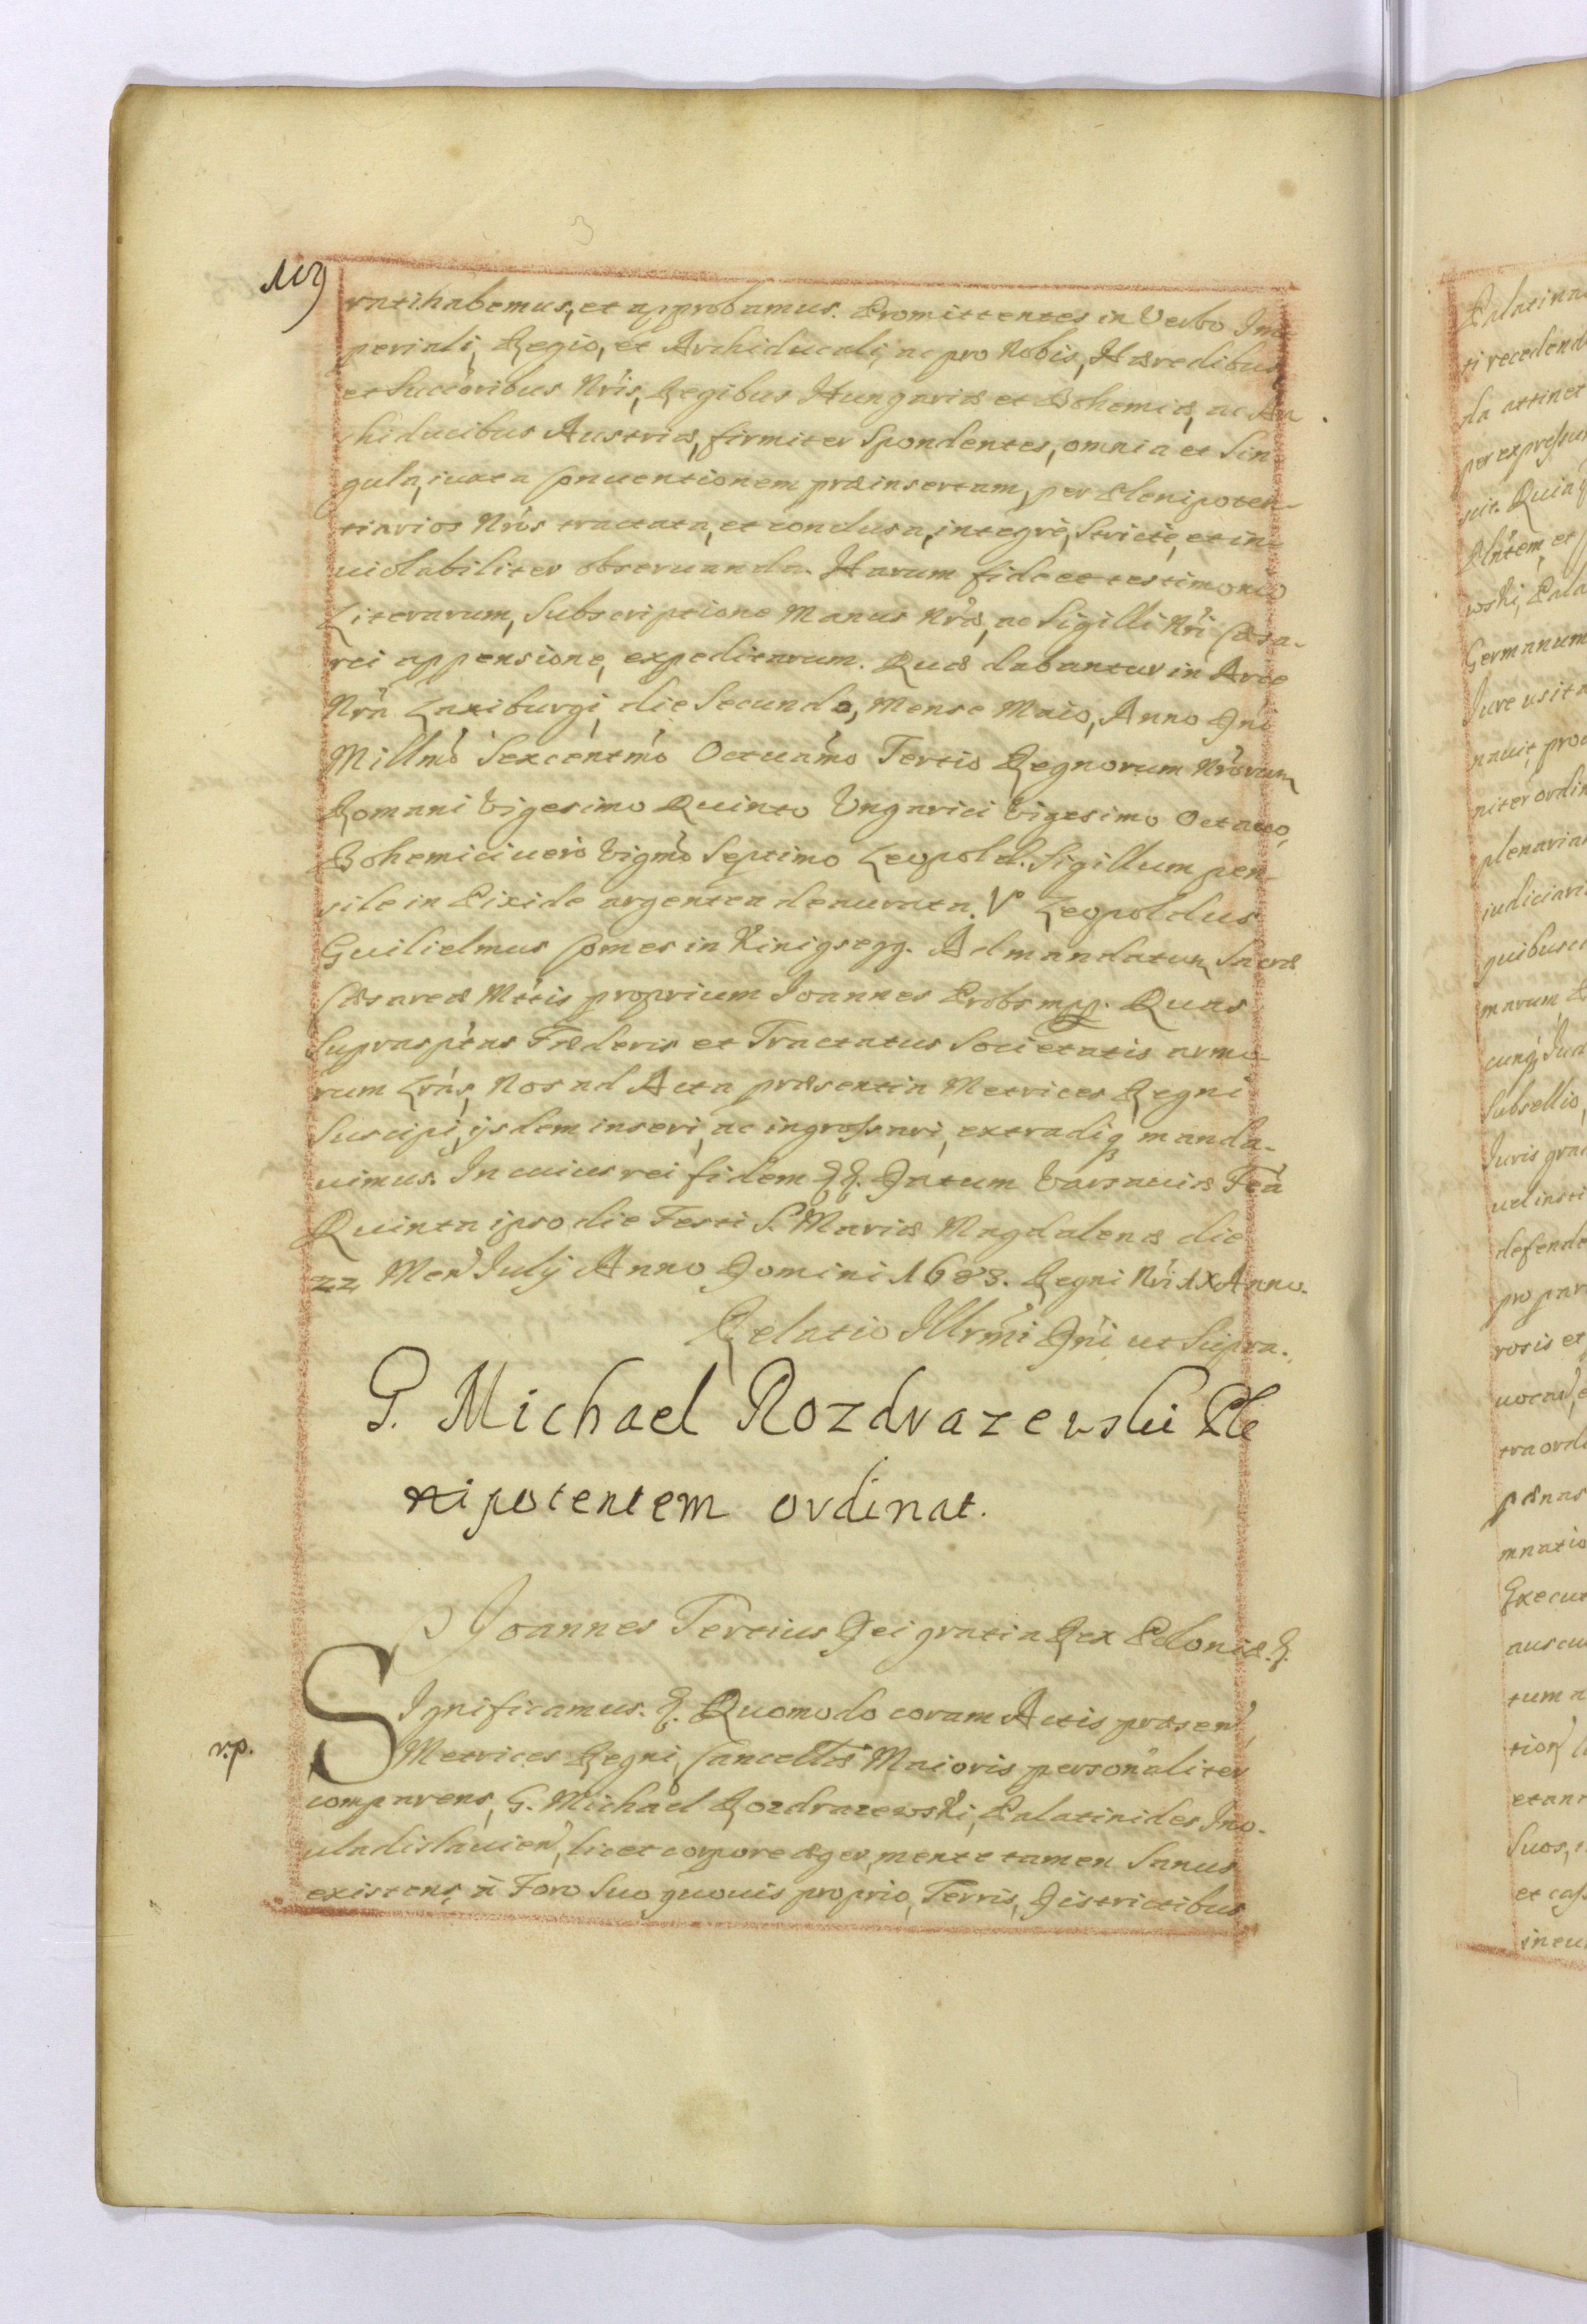 109
ratihabemus, et approbamus. Promittentes in Verbo Im-
periali, Regio, et Archiducali, ac pro Nobis, Hæredibus,
et Succoribus Nris, Regibus Hungariæ et Bohemiæ, ac Ar-
chiducibus Austriæ, firmiter Spondentes, omnia et Sin
gula, iuxta Conuentionem præinsertam, per Plenipoten-
tiarios Nros tractata, et conclusa, integrè, Strictè, et in-
uiolabiliter obseruanda. Harum fide et testimonio
Literarum, Subscriptione Manus Nræ, ac Sigilli Nri Cæsa-
rei appensione, expeditarum. Quæ dabantur in Arce
Nra Laxiburgi, die Secunda, Mense Maio, Anno Dni
Millmo Sexcentmo Octuamo Tertio Regnorum Nrorum
Romani Vigesimo Quinto Vngarici Vigesimo Octauo,
Bohemici uerò Vigmo Septimo Leopold. Sigillum pen-
sile in Pixide argentea deaurata. Vt Leopoldus
Guilielmus Comes in Kinigsegg. Ad mandatum Sacræ
Cæsareæ Mttis proprium Joannes Probs mpp. Quas
Suprasptas Fœderis et Tractatus Societatis armo-
rum Lras, Nos ad Acta præsentia Metrices Regni
Suscipi, ijsdem inseri, ac ingrossari, extradiq manda-
uimus. In cuius rei fidem &&. Datum Varsauiæ Feria
Quinta ipso die Festi S. Mariæ Magdalenæ die
22 Men Julij Anno Domini 1683. Regni Nri IX Anno.
Relatio Illrmi Dni ut Supra.
G. Michael Rozdrazewski Ple
nipotentem ordinat.
Joannes Tertius Dei gratia Rex Poloniæ. &.
SIgnificamus. &. Quomodo coram Actis præsen
r.p.
Metrices Regni, Cancelltæ Maioris personaliter
comparens, G. Michael Rozdrazewski, Palatinides Ino-
uladislauien, licet corpore æger, mente tamen Sanus
existens, à Foro Suo quouis proprio, Terris, Districtibus